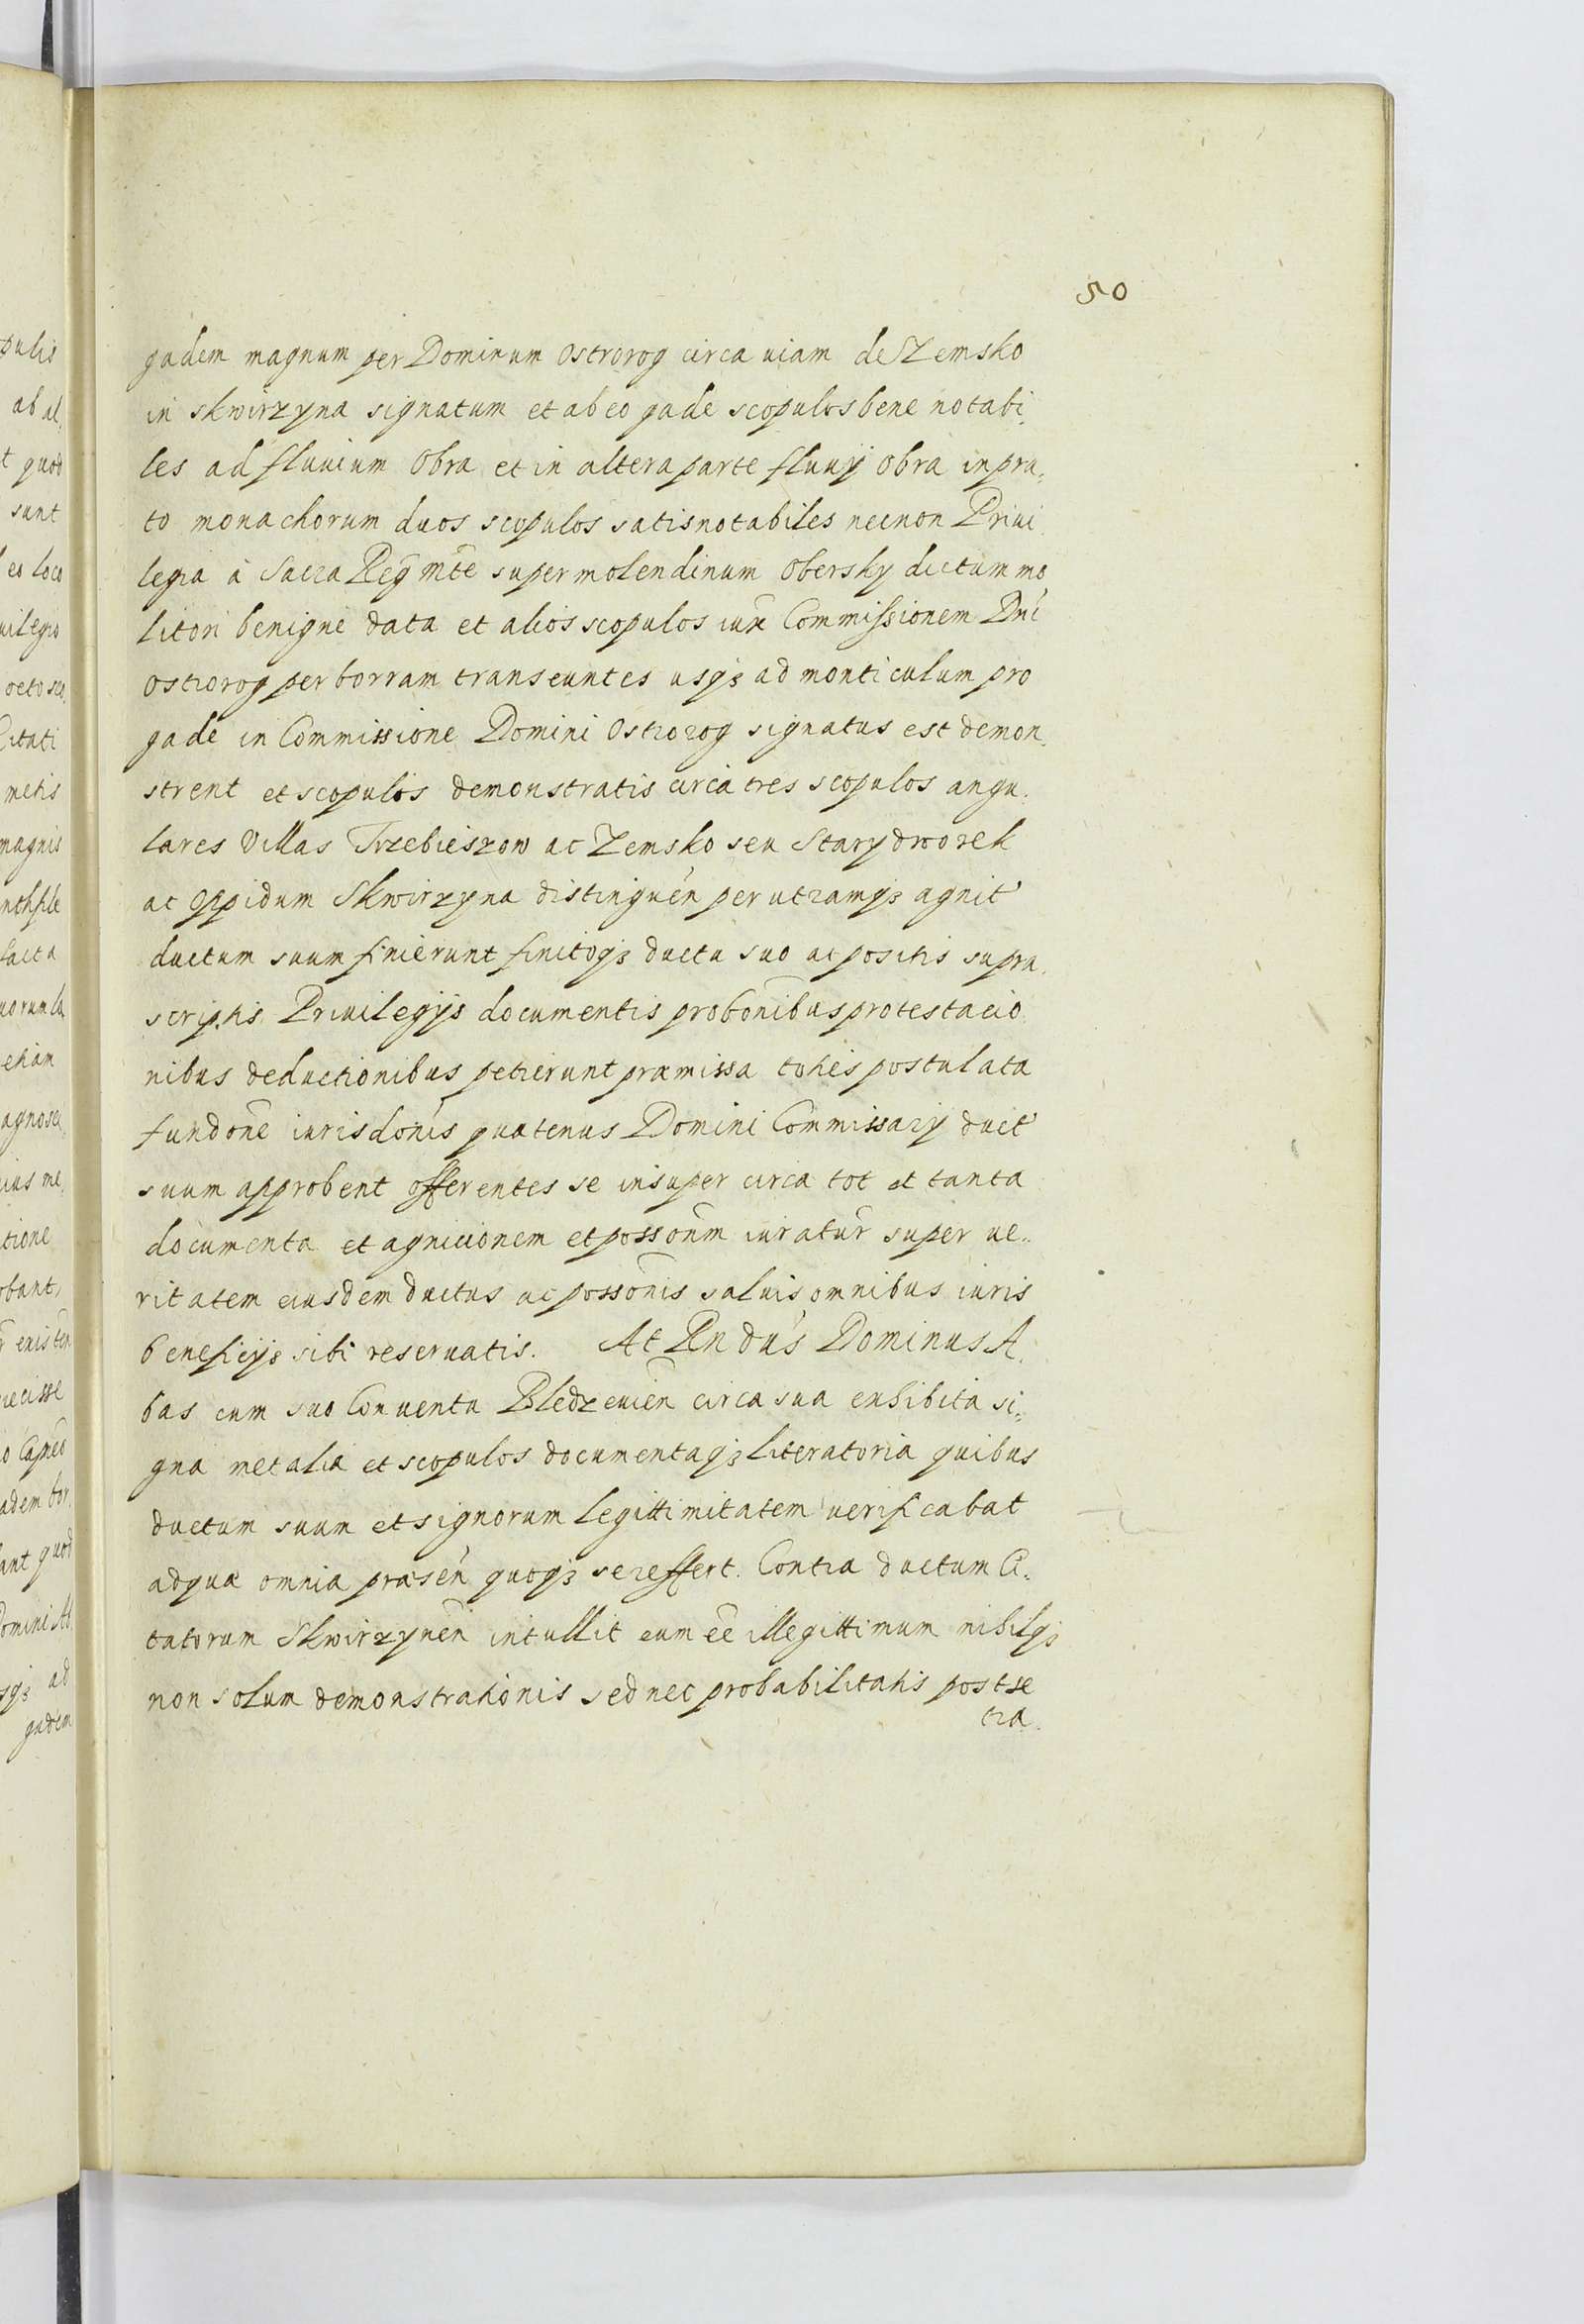 50
gadem magnum per Dominum Ostrorog circa uiam de Zemsko
in Skwirzyna signatum et ab eo gade scopulos bene notabi,
les ad fluuium Obra et in altera parte fluuij Obra in pra,
to monachorum duos scopulos satis notabiles necnon Priui,
legia à Sacra Reg mte super molendinum Obersky dictum mo
litori benigne data et alios scopulos iux Commissionem Dni
Ostrorog per borram transeuntes usqȝ ad monticulum pro
gade in Commissione Domini Ostrorog signatus est demon,
strent et scopulis demonstratis circa tres scopulos angu,
lares Villas Trzebieszow ac Zemsko seu Stary dworek
ac oppidum Skwirzyna distinguen per utramqȝ agnit
ductum suum finierunt finitoqȝ ductu suo ac positis supra,
scriptis Priuilegijs documentis probonibus protestacio
nibus deductionibus petierunt præmissa toties postulata
fundone iurisdonis quatenus Domini Commissarij duct
suum approbent offerentes se insuper circa tot et tanta
documenta et agnicionem et possonm iuratur super ue,,
ritatem eiusdem ductus ac possonis saluis omnibus iuris
beneficijs sibi reseruatis. At Rndus Dominus A,
bas cum suo Conuentu Bledzeuien circa sua exhibita si,
gna metalia et scopulos documentaqȝ literatoria quibus
ductum suum et signorum legittimitatem uerificabat
ad quæ omnia præsen quoqȝ se reffert. Contra ductum Ci,
tatorum Skwirzynen intullit eum ee illegittimum nihilqȝ
non solum demonstrationis sed nec probabilitatis post se
tra.
pulis
ab al,
t quod
sunt
eo loco
uilegio
octo sco,
Citati
metis
magnis
facta
etiam
agnosci,
ius me,
tione
obant,
ant quod
Domini Ab,
sqȝ ad
gadem